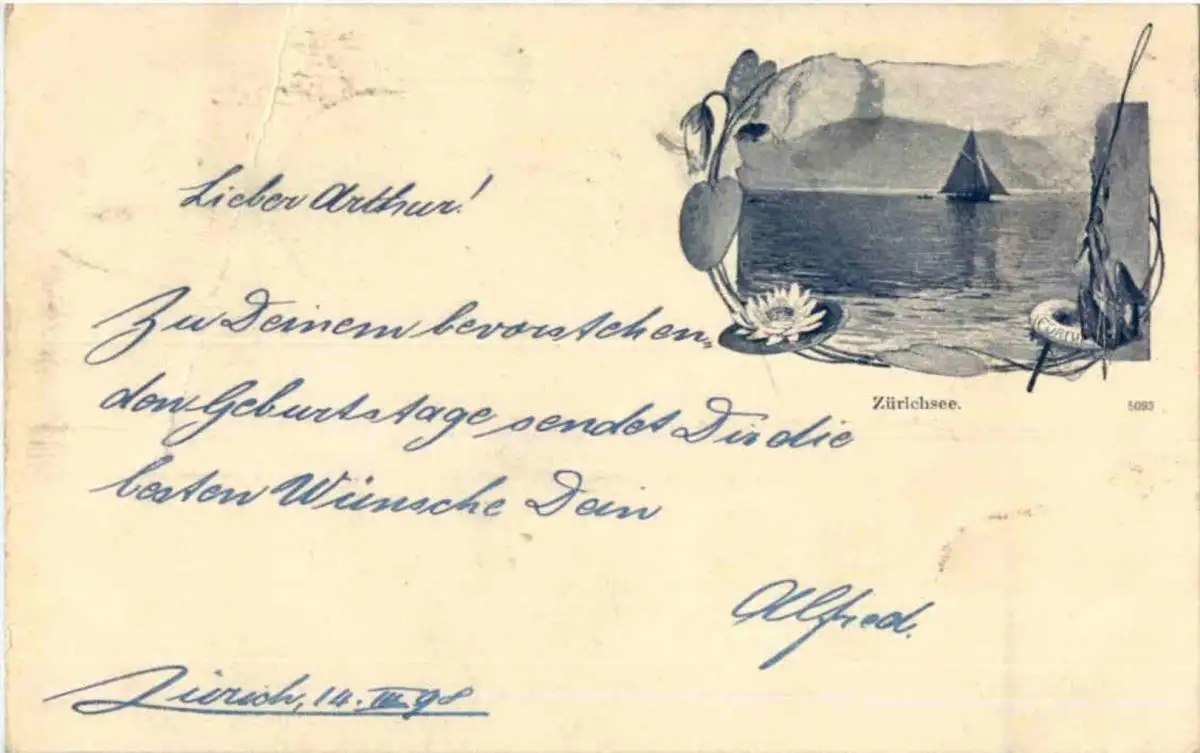 Lieber Arthur!
Zu Deinem bevorstehen-
den Geburtstage sendet Dir die
besten Wünsche Dein
Alfred.
Zürich, 14. III. 98
Zürichsee.
5095